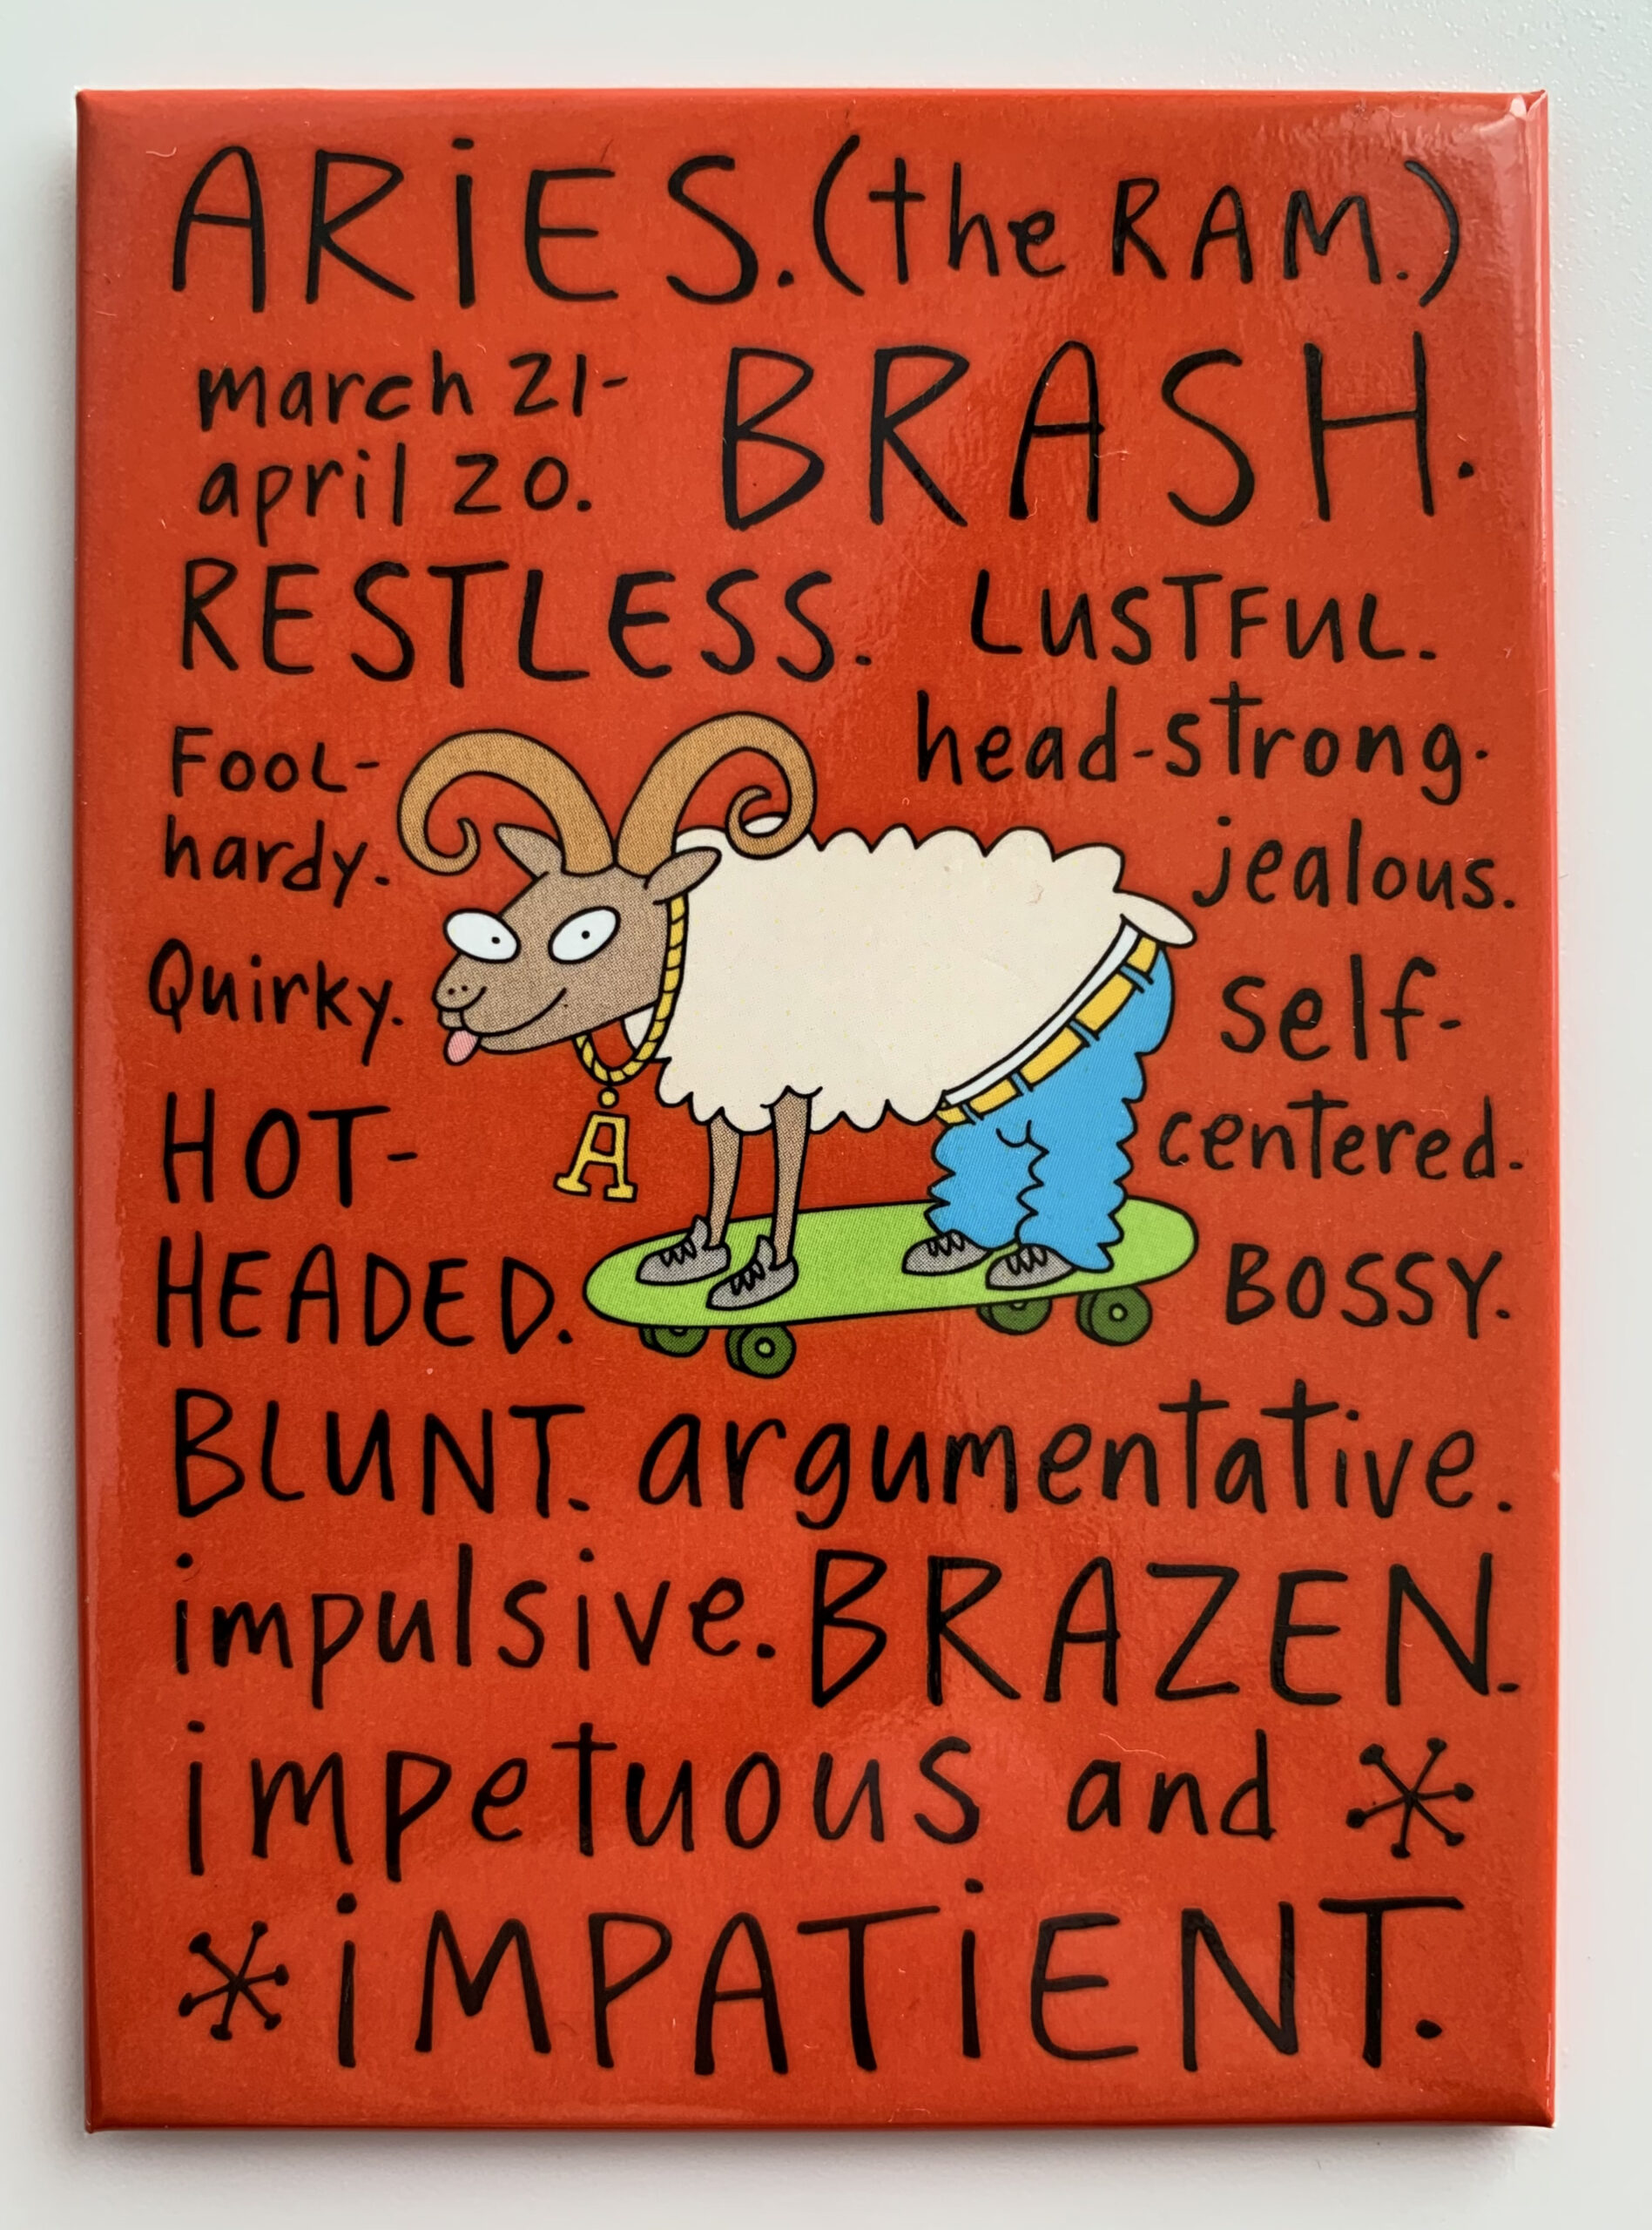 ARiES. (the RAM.)
march 21-
april 20.
BRASH.
RESTLESS. LUSTFUL.
head-strong.
Fool-
hardy.
jealous.
Quirky.
self-
centered.
HOT-
HEADED.
A
BOSSY.
BLUNT. argumentative.
impulsive. BRAZEN.
impetuous and *
* iMPATiENT.